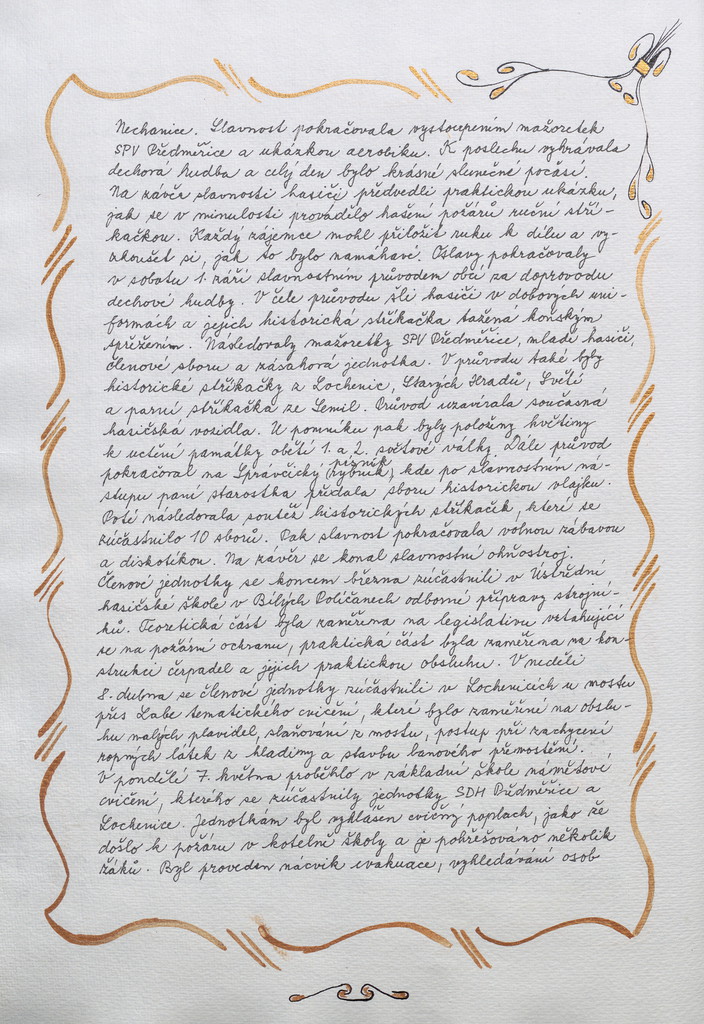 Nechanice. Slavnost pokračovala vystoupením mažoretek
SPV Předměřice a ukázkou aerobiku. K poslechu vyhrávala
dechová hudba a celý den bylo krásné slunečné počasí.
Na závěr slavnosti hasiči předvedli praktickou ukázku,
jak se v minulosti provádělo hašení požárů ruční stří-
kačkou. Každý zájemce mohl přiložit ruku k dílu a vy-
zkoušet si, jak to bylo namáhavé. Oslavy pokračovaly
v sobotu 1. září slavnostním průvodem obcí za doprovodu
dechové hudby. V čele průvodu šli hasiči v dobových uni-
formách a jejich historická stříkačka tažená koňským
spřežením. Následovaly mažoretky SPV Předměřice, mladí hasiči,
členové sboru a zásahová jednotka. V průvodu také byly
historické stříkačky z Lochenic, Starých Hradů, Světí
a parní stříkačka ze Semil. Průvod uzavírala současná
hasičská vozidla. U pomníku pak byly položeny květiny
k uctění památky obětí 1. a 2. světové války. Dále průvod
pokračoval na Správčický (rybník) písník, kde po slavnostním ná-
stupu paní starostka předala sboru historickou vlajku.
Poté následovala soutěž historických stříkaček, které se
zúčastnilo 10 sborů. Pak slavnost pokračovala volnou zábavou
a diskotékou. Na závěr se konal slavnostní ohňostroj.
Členové jednotky se koncem března zúčastnili v Ústřední
hasičské škole v Bílých Poličanech odborné přípravy strojní-
ků. Teoretická část byla zaměřena na legislativu vztahující
se na požární ochranu, praktická část byla zaměřena na kon-
strukci čerpadel a jejich praktickou obsluhu. V neděli
8. dubna se členové jednotky zúčastnili v Lochenicích u mostu
přes Labe tematického cvičení, které bylo zaměřené na obslu-
hu malých plavidel, slaňování z mostu, postup při zachycení
ropných látek z hladiny a stavbu lanového přemostění.
V pondělí 7. května proběhlo v základní škole námětové
cvičení, kterého se zúčastnily jednotky SDH Předměřice a
Lochenice. Jednotkám byl vyhlášen cvičný poplach, jako že
došlo k požáru v kotelně školy a je pohřešováno několik
žáků. Byl proveden nácvik evakuace, vyhledávání osob